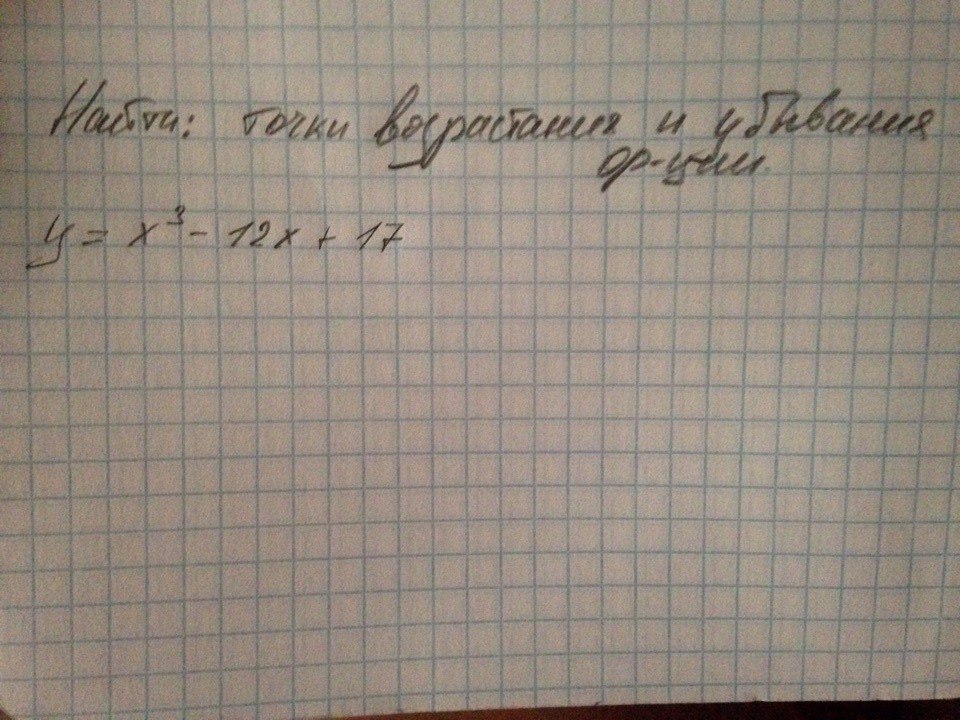 Найти: точки возрастания и убывания
ф-ции
y = x³ - 12x + 17